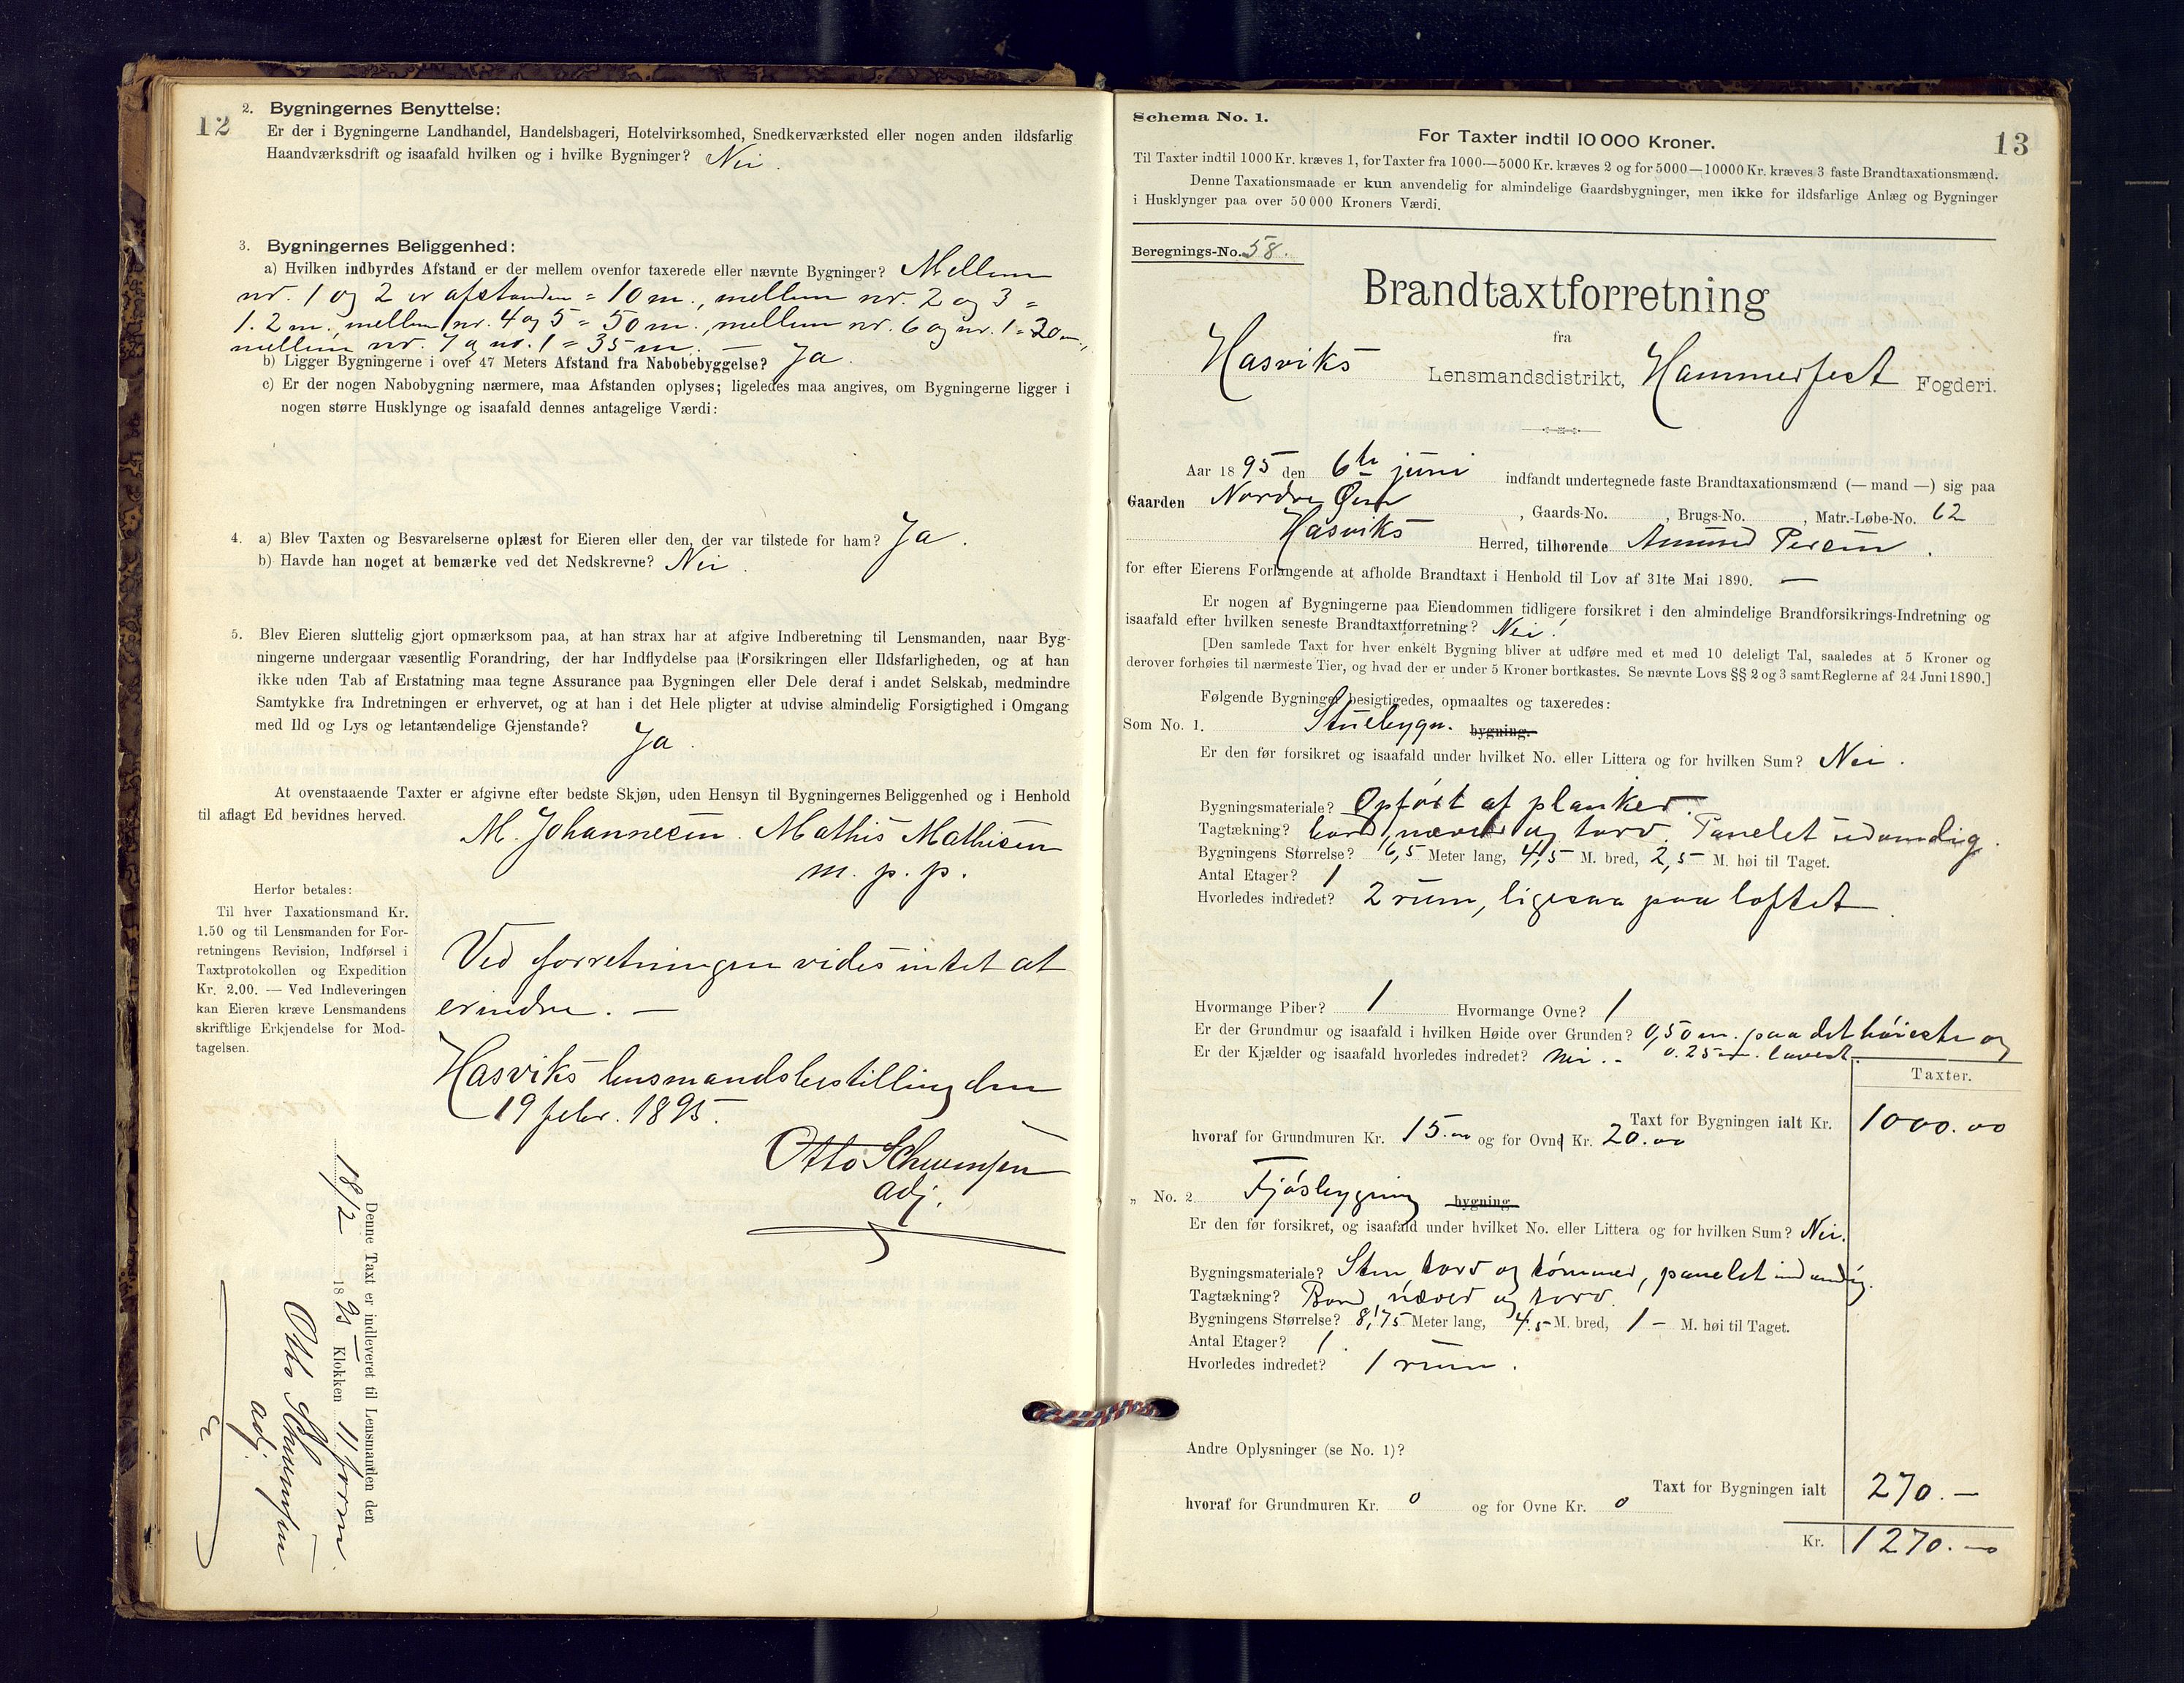 12
2. Bygningernes Benyttelse:
Er der i Bygningerne Landhandel, Handelsbageri, Hotelvirksomhed, Snedkerværksted eller nogen anden ildsfarlig
Haandværksdrift og isaafald hvilken og i hvilke Bygninger? Nei.
3. Bygningernes Beliggenhed:
a) Hvilken indbyrdes Afstand er der mellem ovenfor taxerede eller nævnte Bygninger? Mellem
nr. 1 og 2 er afstanden = 10 m., mellem nr. 2 og 3 =
1.2 m. mellem nr. 4 og 5 = 50 m., mellem nr. 6 og nr. 1 = 20 m.,
mellem nr. 7 og nr. 1 = 35 m. —
b) Ligger Bygningerne i over 47 Meters Afstand fra Nabobebyggelse? Ja.
c) Er der nogen Nabobygning nærmere, maa Afstanden oplyses; ligeledes maa angives, om Bygningerne ligger i
nogen større Husklynge og isaafald dennes antagelige Værdi:
4. a) Blev Taxten og Besvarelserne oplæst for Eieren eller den, der var tilstede for ham? Ja.
b) Havde han noget at bemærke ved det Nedskrevne? Nei.
5. Blev Eieren sluttelig gjort opmærksom paa, at han strax har at afgive Indberetning til Lensmanden, naar Byg-
ningerne undergaar væsentlig Forandring, der har Indflydelse paa Forsikringen eller Ildsfarligheden, og at han
ikke uden Tab af Erstatning maa tegne Assurance paa Bygningen eller Dele deraf i andet Selskab, medmindre
Samtykke fra Indretningen er erhvervet, og at han i det Hele pligter at udvise almindelig Forsigtighed i Omgang
med Ild og Lys og letantændelige Gjenstande? Ja.
At ovenstaaende Taxter er afgivne efter bedste Skjøn, uden Hensyn til Bygningernes Beliggenhed og i Henhold
til aflagt Ed bevidnes herved.
M. Johannesen. Mathis Mathisen
m. p. p.
Herfor betales:
Til hver Taxationsmand Kr.
1.50 og til Lensmanden for For-
retningens Revision, Indførsel i
Taxtprotokollen og Expedition
Kr. 2.00. — Ved Indleveringen
kan Eieren kræve Lensmandens
skriftlige Erkjendelse for Mod-
tagelsen.
Ved forretningen vides intet at
erindre. —
Hasviks lensmandsbestilling den
19 febr. 1895.
Otto
adj.
Denne Taxt er indleveret til Lensmanden den
18/2 1895 Klokken 11 form.
Otto
adj.
Schema No. 1.
13
For Taxter indtil 10 000 Kroner.
Til Taxter indtil 1000 Kr. kræves 1, for Taxter fra 1000—5000 Kr. kræves 2 og for 5000—10000 Kr. kræves 3 faste Brandtaxationsmænd.
Denne Taxationsmaade er kun anvendelig for almindelige Gaardsbygninger, men ikke for ildsfarlige Anlæg og Bygninger
i Husklynger paa over 50 000 Kroners Værdi.
Beregnings-No. 58.
Brandtaxtforretning
fra
Hasviks Lensmandsdistrikt, Hammerfest Fogderi.
Aar 1895 den 6te juni indfandt undertegnede faste Brandtaxationsmænd (— mand —) sig paa
Gaarden Nordre , Gaards-No. , Brugs-No. , Matr.-Løbe-No. 62
Hasviks Herred, tilhørende Amund Persen.
for efter Eierens Forlangende at afholde Brandtaxt i Henhold til Lov af 31te Mai 1890. —
Er nogen af Bygningerne paa Eiendommen tidligere forsikret i den almindelige Brandforsikrings-Indretning og
isaafald efter hvilken seneste Brandtaxtforretning? Nei!
[Den samlede Taxt for hver enkelt Bygning bliver at udføre med et med 10 deleligt Tal, saaledes at 5 Kroner og
derover forhøies til nærmeste Tier, og hvad der er under 5 Kroner bortkastes. Se nævnte Lovs §§ 2 og 3 samt Reglerne af 24 Juni 1890.]
Følgende Bygninger besigtigedes, opmaaltes og taxeredes:
Som No. 1. Stuebygn. bygning.
Er den før forsikret og isaafald under hvilket No. eller Littera og for hvilken Sum? Nei.
Bygningsmateriale? Opført af planker.
Tagtækning? bord, næver og torv. Panelet udvendig.
Bygningens Størrelse? 6,5 Meter lang, 4,5 M. bred, 2,5 M. høi til Taget.
Antal Etager? 1
Hvorledes indredet? 2 rum, ligesaa paa loftet
Hvormange Piber? 1 Hvormange Ovne? 1
Er der Grundmur og isaafald i hvilken Høide over Grunden? 0,50 m. paa det høieste og
Er der Kjælder og isaafald hvorledes indredet? nei. - 0.25 m. lavest.
Taxter.
Taxt for Bygningen ialt Kr. 1000.00
hvoraf for Grundmuren Kr. 15.00 og for Ovne Kr. 20.00
„ No. 2. Fjøsbygning bygning.
Er den før forsikret, og isaafald under hvilket No. eller Littera og for hvilken Sum? Nei.
Bygningsmateriale? Sten, torv og tømmer, panelet indvendig.
Tagtækning? Bord, næver og torv.
Bygningens Størrelse? 8,75 Meter lang, 4.5 M. bred, 1 — M. høi til Taget.
Antal Etager? 1.
Hvorledes indredet? 1 rum.
Andre Oplysninger (se No. 1)?
Taxt for Bygningen ialt 270.—
hvoraf for Grundmuren Kr. 0 og for Ovne Kr. 0
Kr. 1270.—